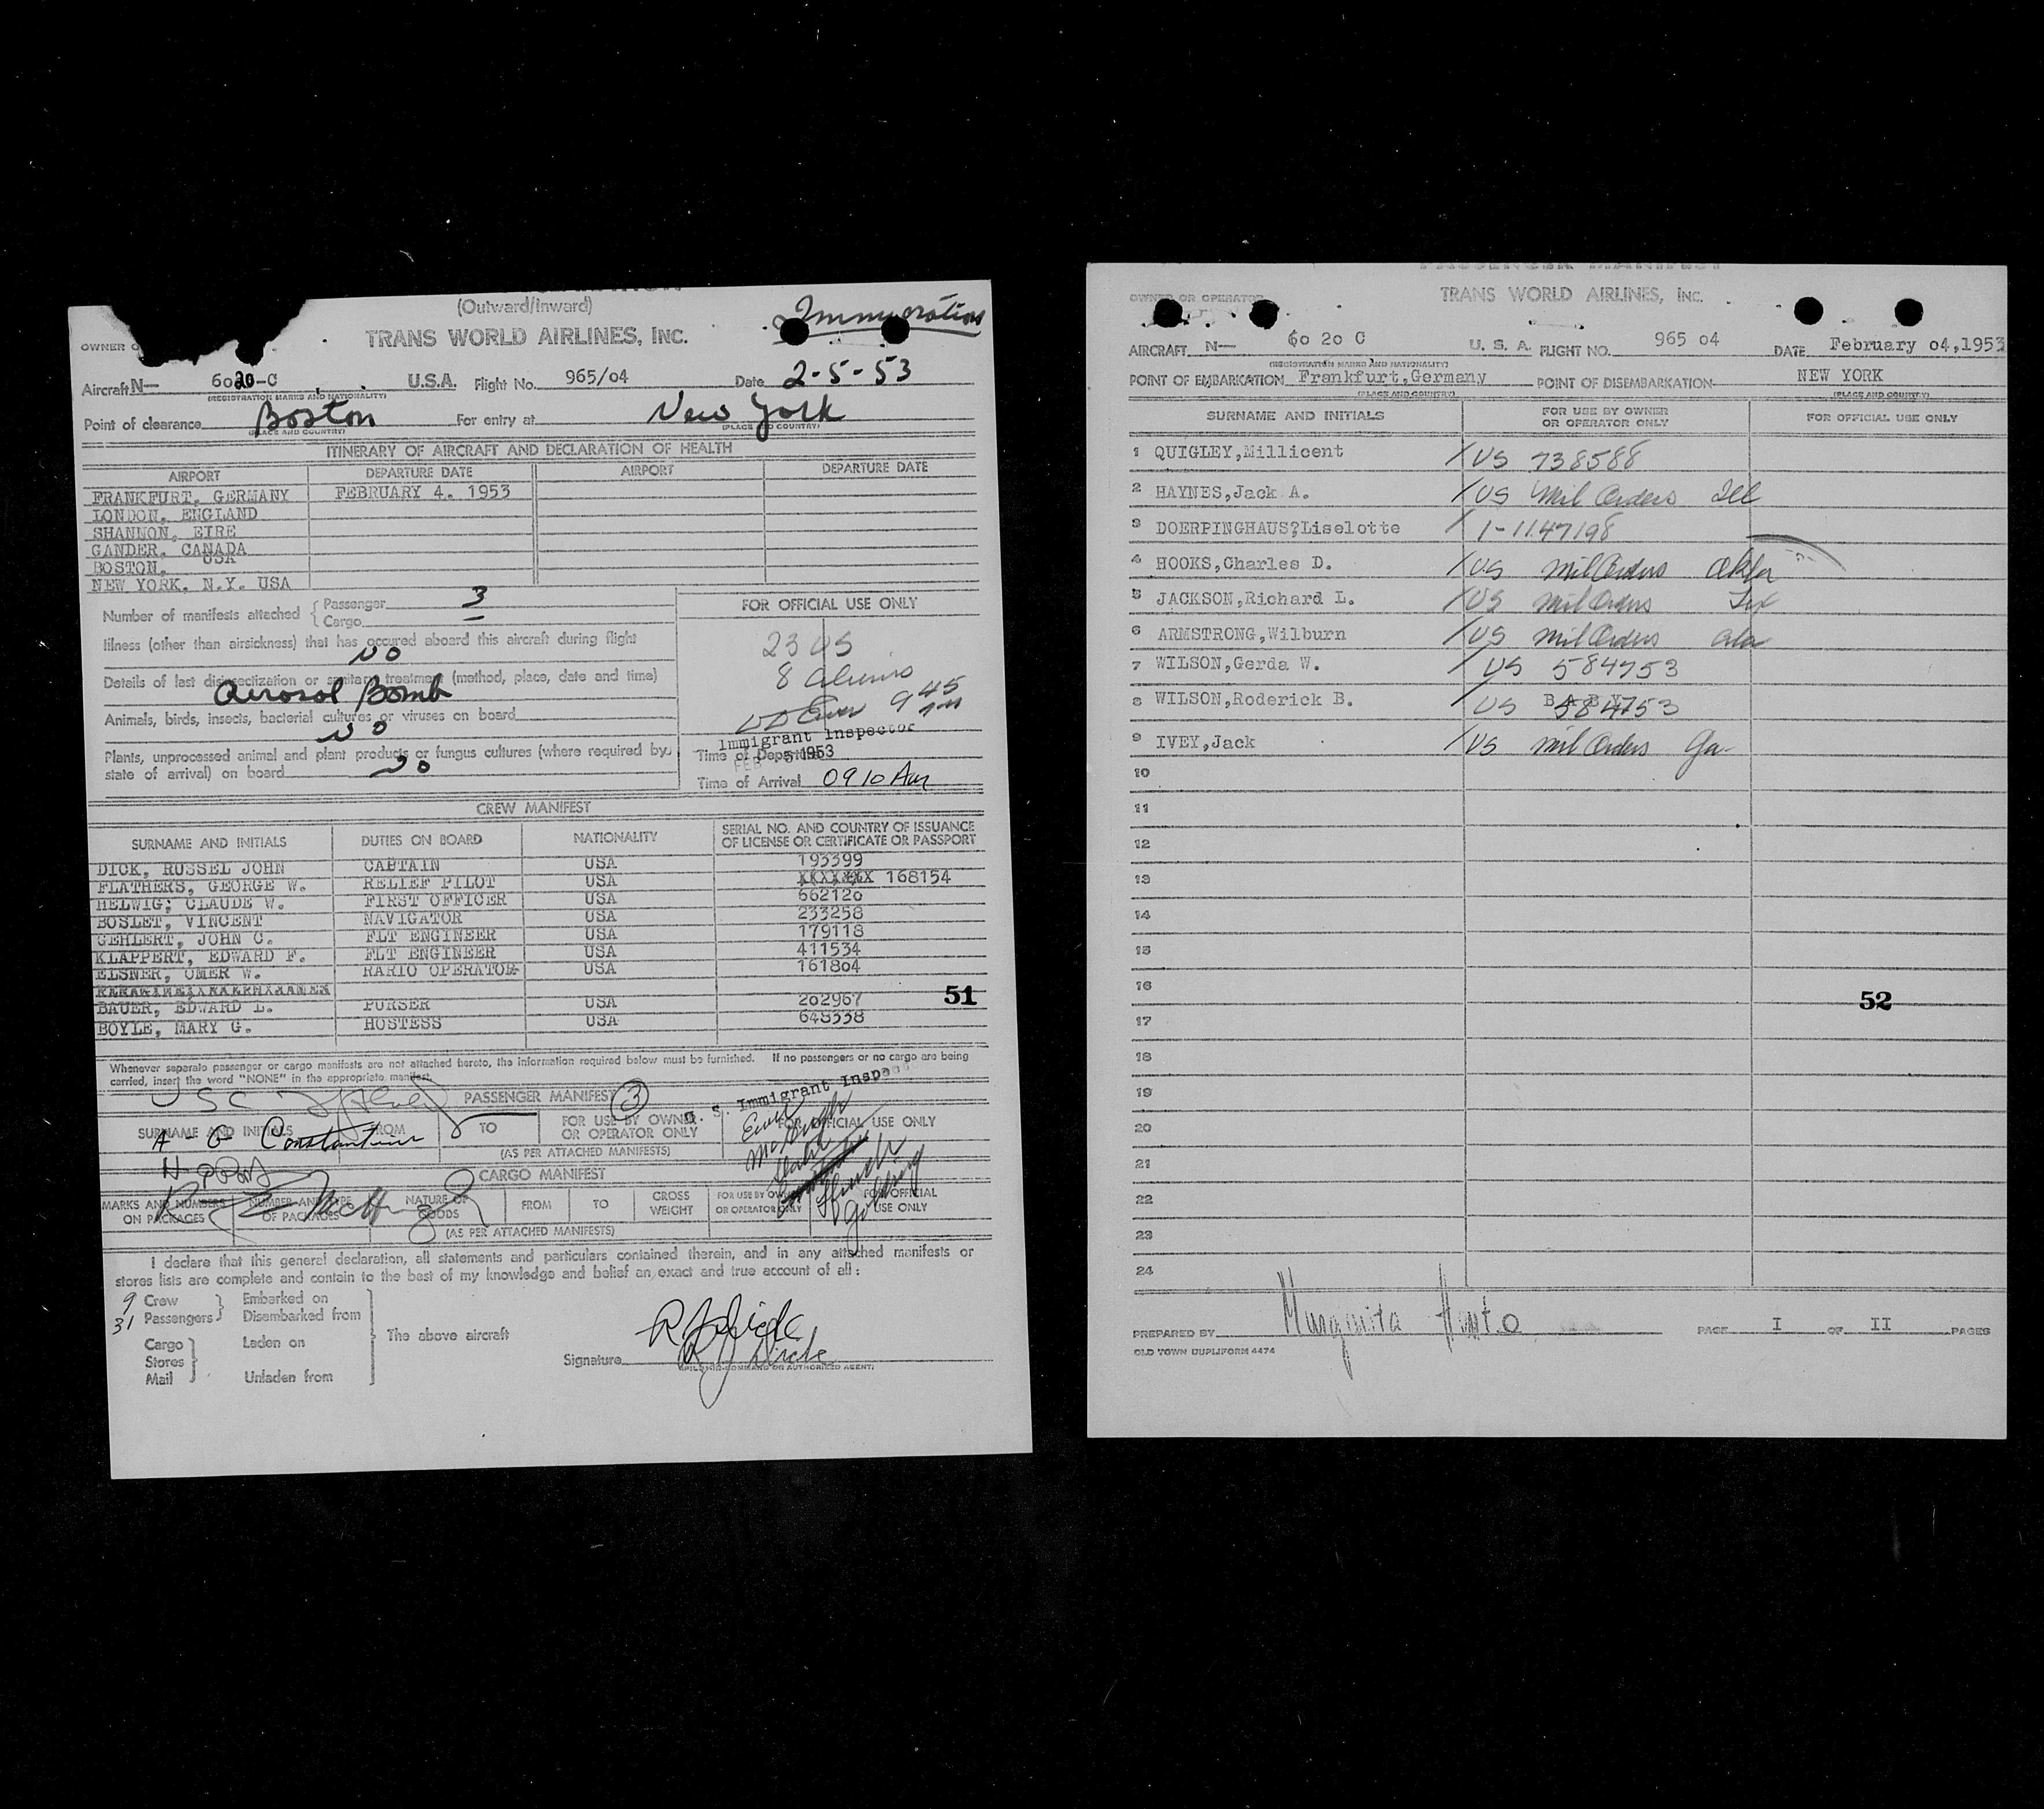 (Outward/Inward)
Immigration
TRANS WORLD AIRLINES, INC.
OWNER O
Aircraft N— 6020-C U.S.A. Flight No. 965/04 Date 2-5-53
(REGISTRATION MARKS AND NATIONALITY)
Point of clearance Boston For entry at New York
(PLACE AND COUNTRY) (PLACE AND COUNTRY)
ITINERARY OF AIRCRAFT AND DECLARATION OF HEALTH
AIRPORT DEPARTURE DATE AIRPORT DEPARTURE DATE
FRANKFURT, GERMANY FEBRUARY 4. 1953
LONDON, ENGLAND
SHANNON, EIRE
GANDER, CANADA
BOSTON, USA
NEW YORK, N.Y. USA
Number of manifests attached { Passenger 3
Cargo —
FOR OFFICIAL USE ONLY
23 US
8 Aliens
9 45 am
Immigrant Inspector
FEB 5 1953
Illness (other than airsickness) that has occured aboard this aircraft during flight
NO
Details of last disinsectization or sanitary treatment (method, place, date and time)
Aerosol Bomb
Animals, birds, insects, bacterial cultures or viruses on board
NO
Plants, unprocessed animal and plant products or fungus cultures (where required by
state of arrival) on board NO
Time of Departure
Time of Arrival 0910 Am
CREW MANIFEST
SURNAME AND INITIALS DUTIES ON BOARD NATIONALITY SERIAL NO. AND COUNTRY OF ISSUANCE
OF LICENSE OR CERTIFICATE OR PASSPORT
DICK, RUSSEL JOHN CABTAIN USA 193399
FLATHERS, GEORGE W. RELIEF PILOT USA XXXXXXX 168154
HELWIG; CLAUDE W. FIRST OFFICER USA 662120
BOSLET, VINCENT NAVIGATOR USA 233258
GEHLERT, JOHN C. FLT ENGINEER USA 179118
KLAPPERT, EDWARD F. FLT ENGINEER USA 411534
ELSNER, OMER W. RARIO OPERATOR USA 161804
BAUER, EDWARD L. PURSER USA 202967
51
BOYLE, MARY G. HOSTESS USA 648338
Whenever separate passenger or cargo manifests are not attached hereto, the information required below must be furnished. If no passengers or no cargo are being
carried, insert the word "NONE" in the appropriate manifest.
USC
PASSENGER MANIFEST 3
S. Immigrant Inspec
SURNAME AND INITIALS FROM TO FOR USE BY OWNER
OR OPERATOR ONLY FOR OFFICIAL USE ONLY
A - G Constantine
(AS PER ATTACHED MANIFESTS)
CARGO MANIFEST
MARKS AND NUMBERS
ON PACKAGES NUMBER AND TYPE
OF PACKAGES NATURE OF
GOODS FROM TO CROSS
WEIGHT FOR USE BY OWNER
OR OPERATOR ONLY FOR OFFICIAL
USE ONLY
(AS PER ATTACHED MANIFESTS)
I declare that this general declaration, all statements and particulars contained therein, and in any attached manifests or
stores lists are complete and contain to the best of my knowledge and belief an exact and true account of all:
9 Crew } Embarked on
31 Passengers } Disembarked from
The above aircraft
Cargo Laden on
Stores
Mail Unladen from
Signature R J Dick
(PILOT-IN-COMMAND OR AUTHORIZED AGENT)
PASSENGER MANIFEST
OWNER OR OPERATOR
TRANS WORLD AIRLINES, INC.
AIRCRAFT N— 60 20 C U. S. A. FLIGHT NO. 965 04 DATE February 04,1953
(REGISTRATION MARKS AND NATIONALITY)
POINT OF EMBARKATION Frankfurt,Germany POINT OF DISEMBARKATION NEW YORK
(PLACE AND COUNTRY) (PLACE AND COUNTRY)
SURNAME AND INITIALS FOR USE BY OWNER
OR OPERATOR ONLY FOR OFFICIAL USE ONLY
1 QUIGLEY,Millicent / US 738588
2 HAYNES,Jack A. / US Mil Orders Ill
3 DOERPINGHAUS?Liselotte / 1-1147198
4 HOOKS,Charles D. / US Mil Orders Okla
5 JACKSON,Richard L. / US Mil Orders Tex
6 ARMSTRONG,Wilburn / US Mil Orders Ala
7 WILSON,Gerda W. / US 584753
8 WILSON,Roderick B. / US BABY 584753
9 IVEY,Jack / US Mil Orders Ga-
10
11
12
13
14
15
16
52
17
18
19
20
21
22
23
24
PREPARED BY PAGE I OF II PAGES
OLD TOWN DUPLIFORM 4474